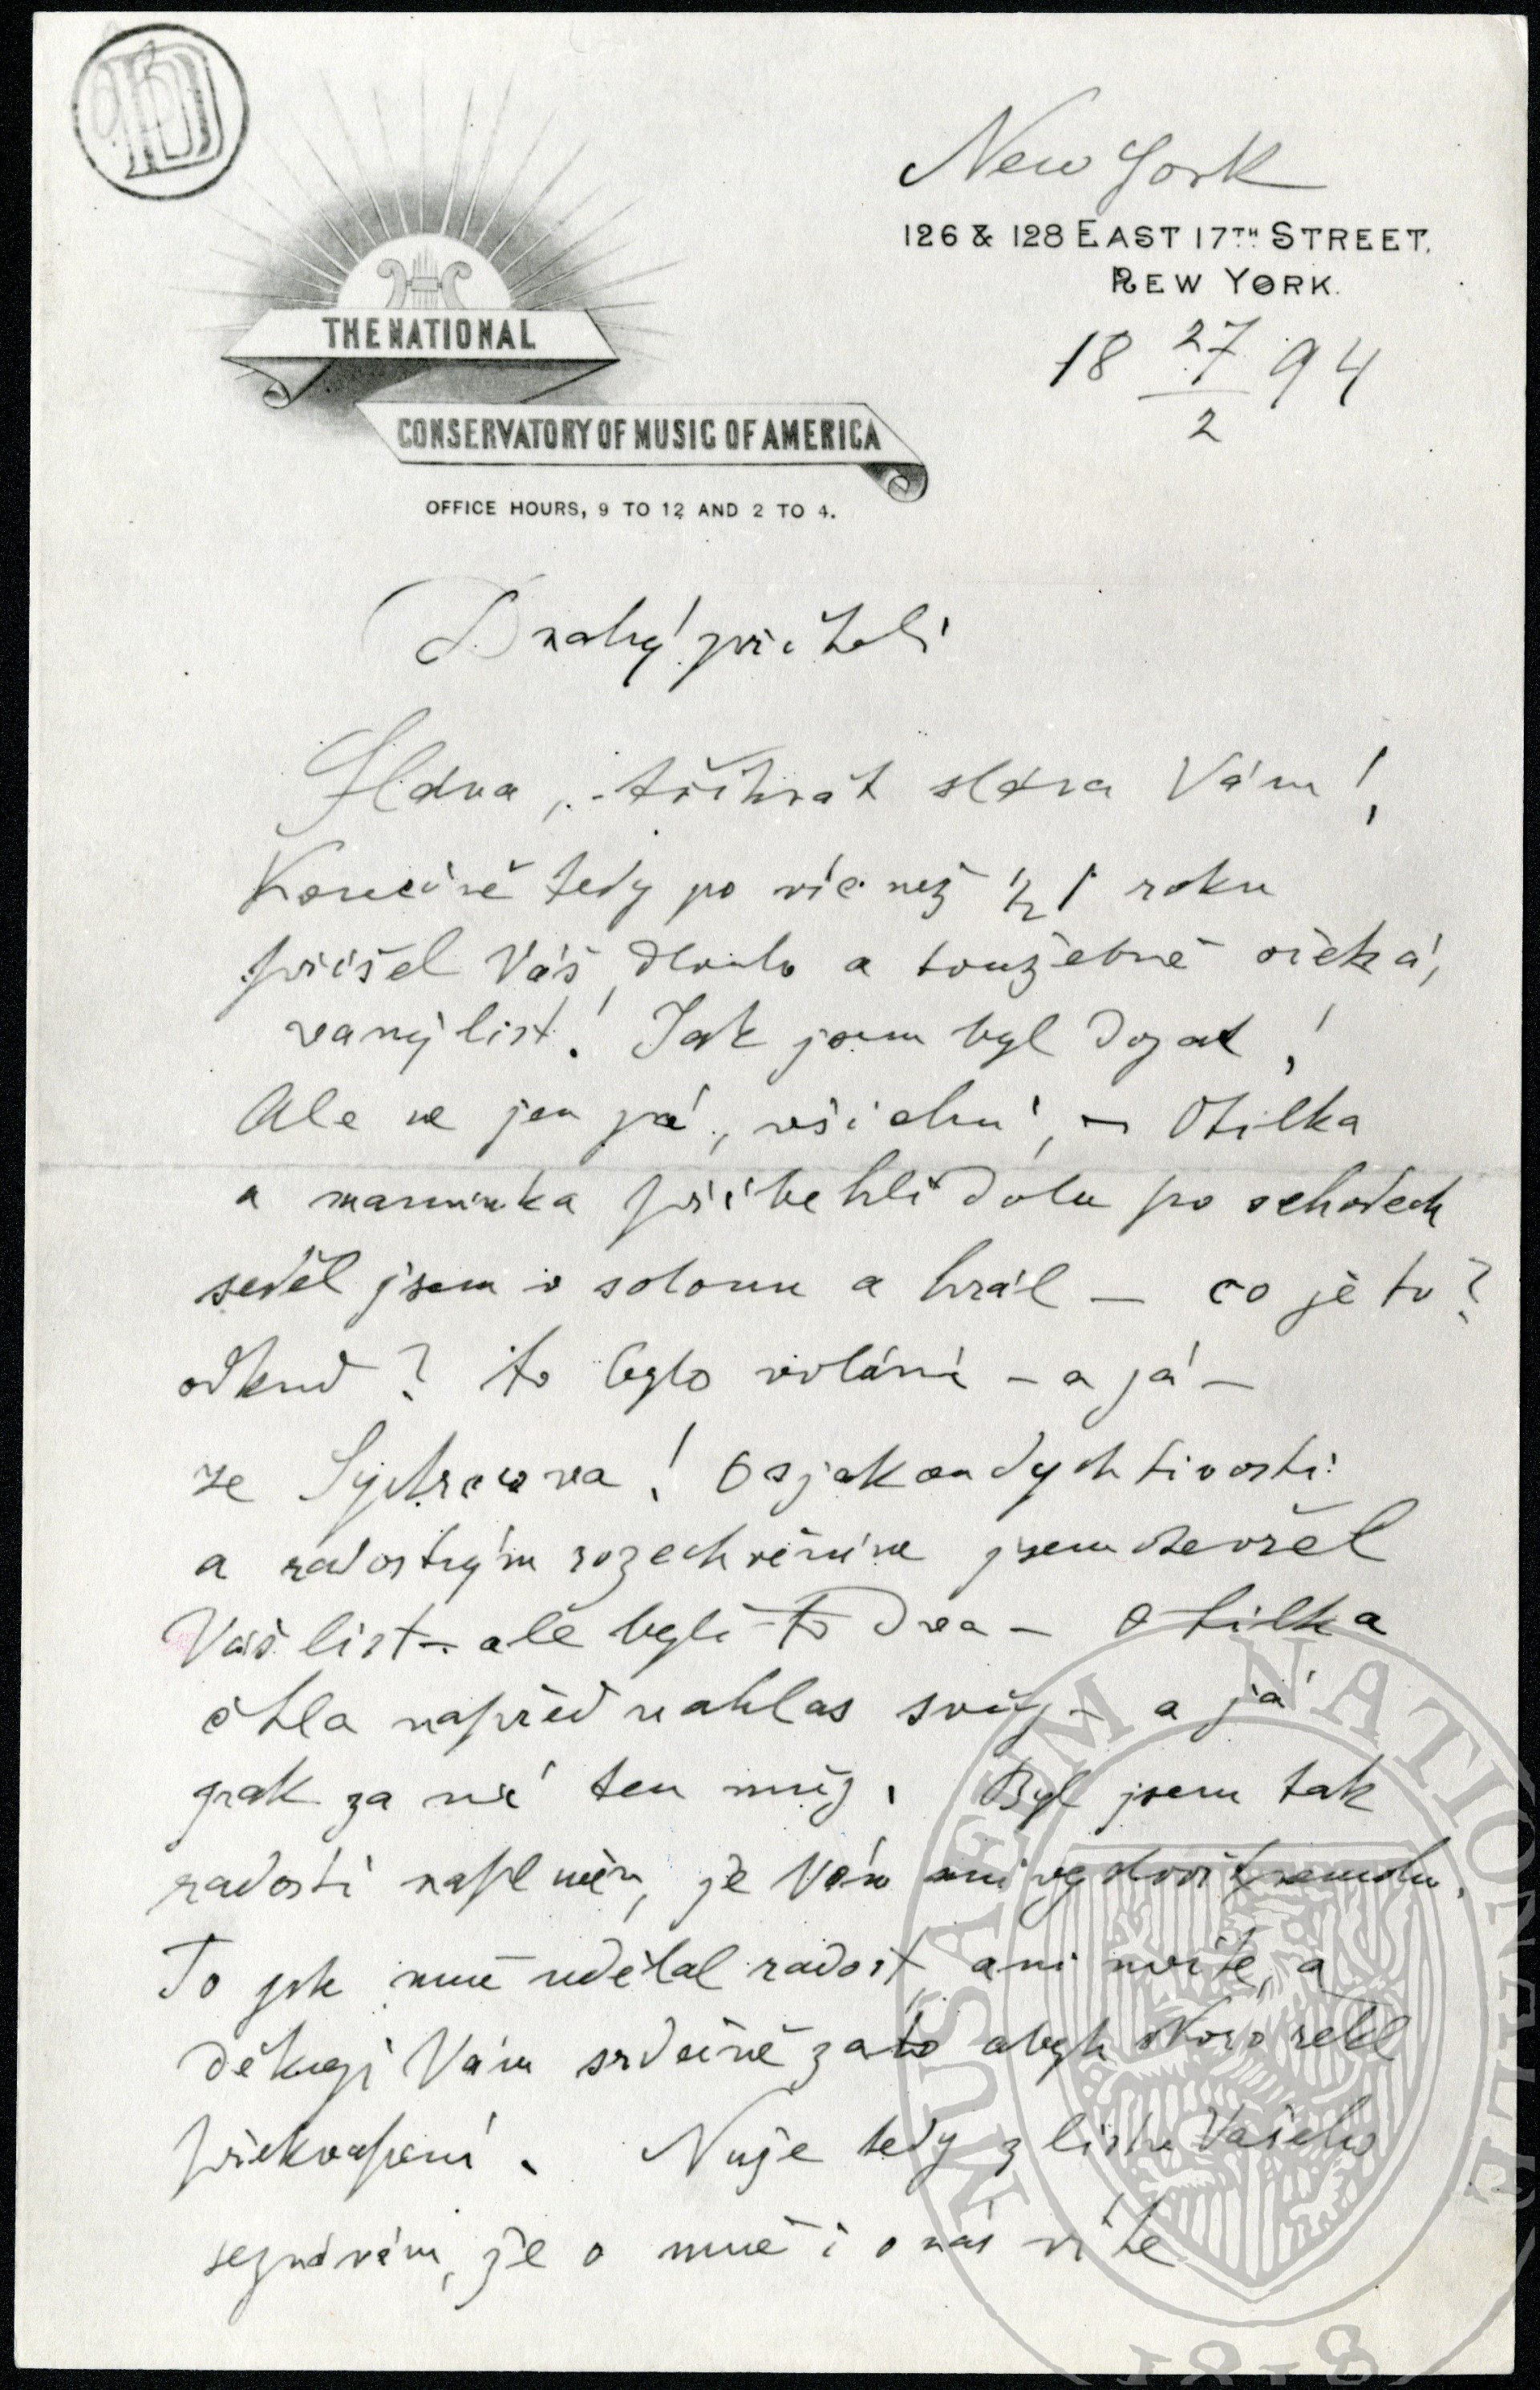 New York
126 & 128 EAST 17TH STREET.
NEW YORK.
18 27/2 94
THE NATIONAL
CONSERVATORY OF MUSIC OF AMERICA
OFFICE HOURS, 9 TO 12 AND 2 TO 4.
Drahý příteli
Sláva, třikrát sláva Vám!
Konečně tedy po víc než ½ roku
přišel Váš dlouho a toužebně očeká-
vaný list! Jak jsem byl dojat!
Ale ne jen já, všichni, – Otilka
a maminka přiběhli dolu po schodech
seděl jsem v salonu a hrál – co je to?
odkud? to bylo volání – a já –
ze Sychrova! O s jakou dychtivostí
a radostným rozechvěním jsem otevřel
Váš list – ale byli to dva – Otilka
četla napřed nahlas svůj – a já
pak za ní ten můj. Byl jsem tak
radostí naplněn, že Vám ani vyslovit nemohu.
To jste mně udělal radost, ani nevíte, a
děkuji Vám srdečně za to abych skoro řekl
překvapení. Nuže tedy z listu Vašeho
seznávám, že o mně i o nás víte
MUSAEUM NATIONALE
1818